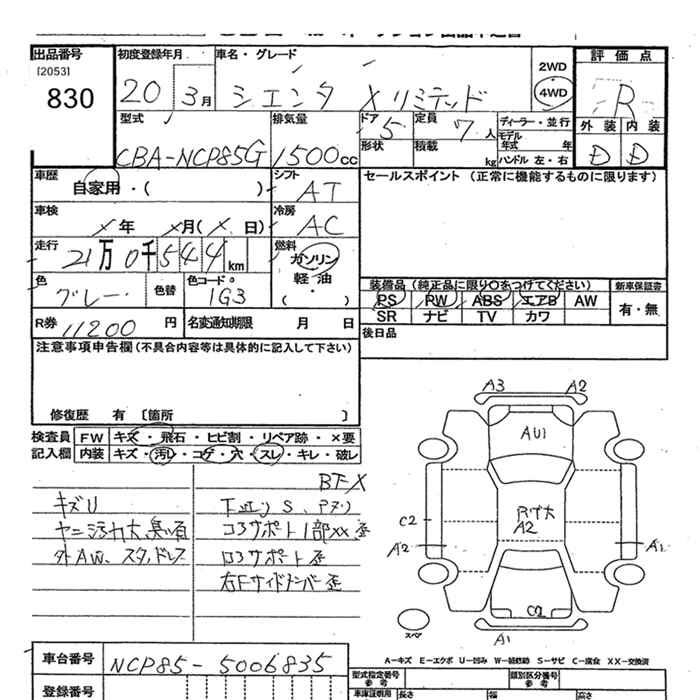 出品番号
[2053]
830
初度登録年月
20 3月
車名・グレード
シエンタ Xリミテッド
2WD
4WD
評価点
R
外装 内装
D D
型式
CBA-NCP85G
排気量
1500cc
ドア
5
形状
定員
7人
積載
kg
ディーラー・並行
モデル年式 年
ハンドル 左・右
車歴
自家用・( )
シフト
AT
セールスポイント (正常に機能するものに限ります)
車検
X年 X月(X日)
冷房
AC
走行
21万0千544km
燃料
ガソリン
軽油
( ・ )
色
グレー
色替
色コード
1G3
装備品 (純正品に限り○をつけてください)
PS PW ABS エアB AW
SR ナビ TV カワ
新車保証書
有・無
R券
11200円
名変通知期限 月 日
後日品
注意事項申告欄(不具合内容等は具体的に記入して下さい)
修復歴 有 [箇所 ]
検査員記入欄
FW キズ・飛石・ヒビ割・リペア跡・×要
内装 キズ・汚レ・コゲ・穴・スレ・キレ・破レ
BFX
キズU
ヤニ汚れ大、臭い有
外AW、スタッドレス
下廻リS、
コアサポート1部XX歪
ロアサポート歪
右Fサイドメンバー歪
A3 A2
AU1
A2
C2
A2
A1
C2
A1
スペア
A-キズ E-エクボ U-凹み W-補修跡 S-サビ C-腐食 XX-交換済
車台番号
NCP85-5006835
登録番号
型式指定番号
参考
類別区分番号
参考
車庫証明用
長さ
幅
高さ